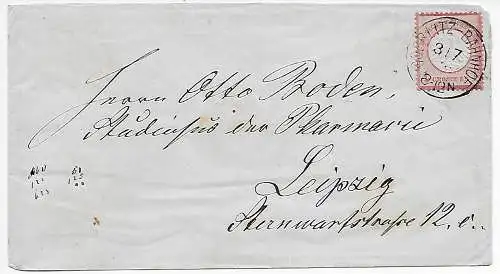 GÖRLITZ-BAHNHOF
31 7
8-10N
Herrn Otto Boden,
Studiosus der Pharmacie
Leipzig
Sternwartstrasse 12,